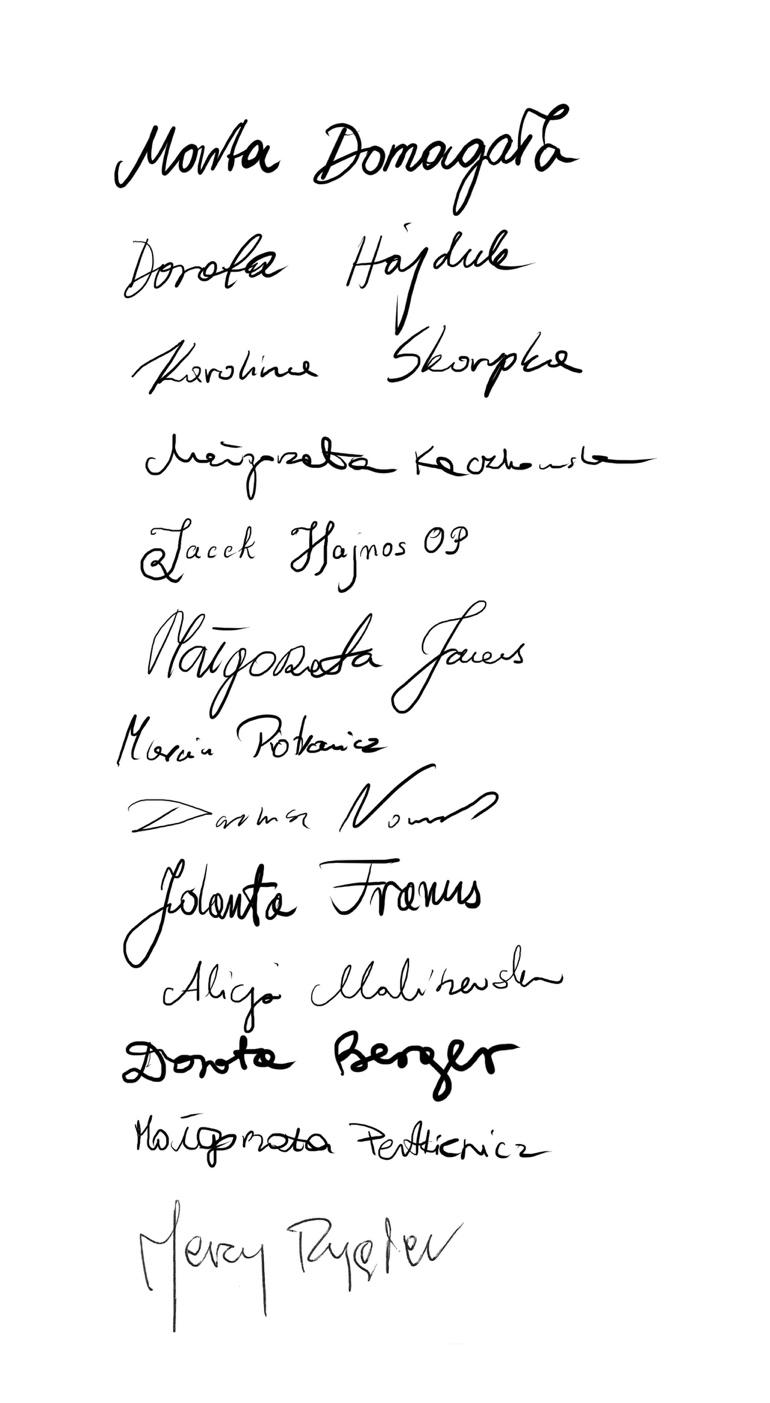 Marta Domagała
Dorota Hajduk
Karolina Skorupka
Małgorzata Kaczkowska
Jacek Hajnos OP
Małgorzata Janus
Marcin Piotkowicz
Dariusz Nowak
Jolanta Franus
Alicja Maliszewska
Dorota Berger
Małgorzata
Jerzy Rygiel